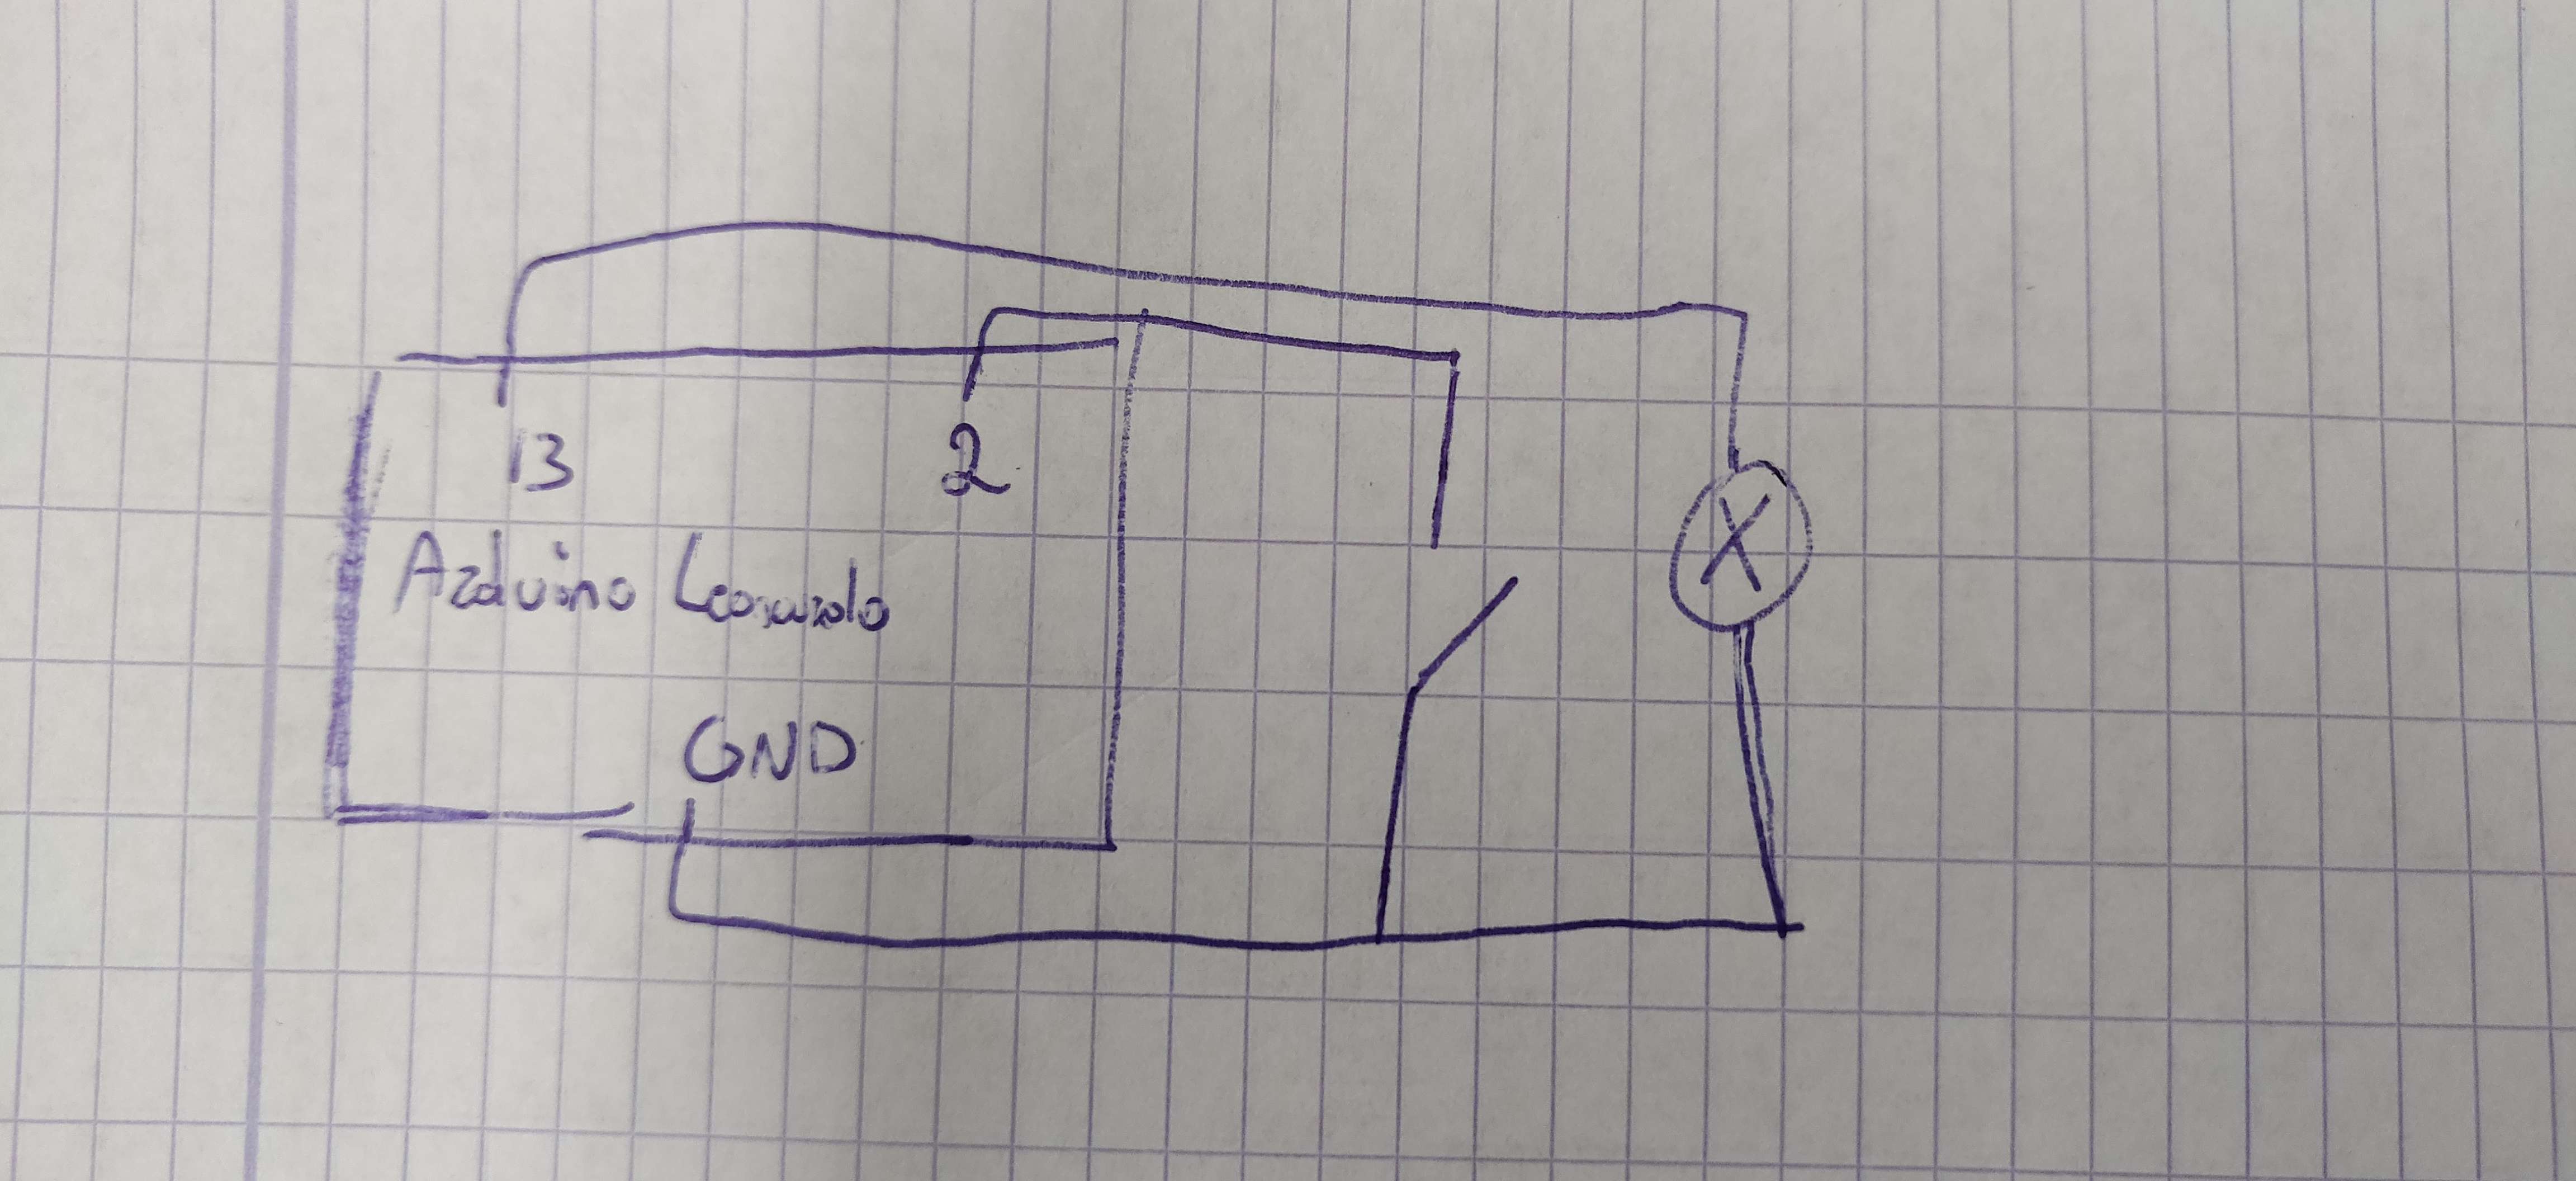 13 2
Arduino Leonardo
GND
X